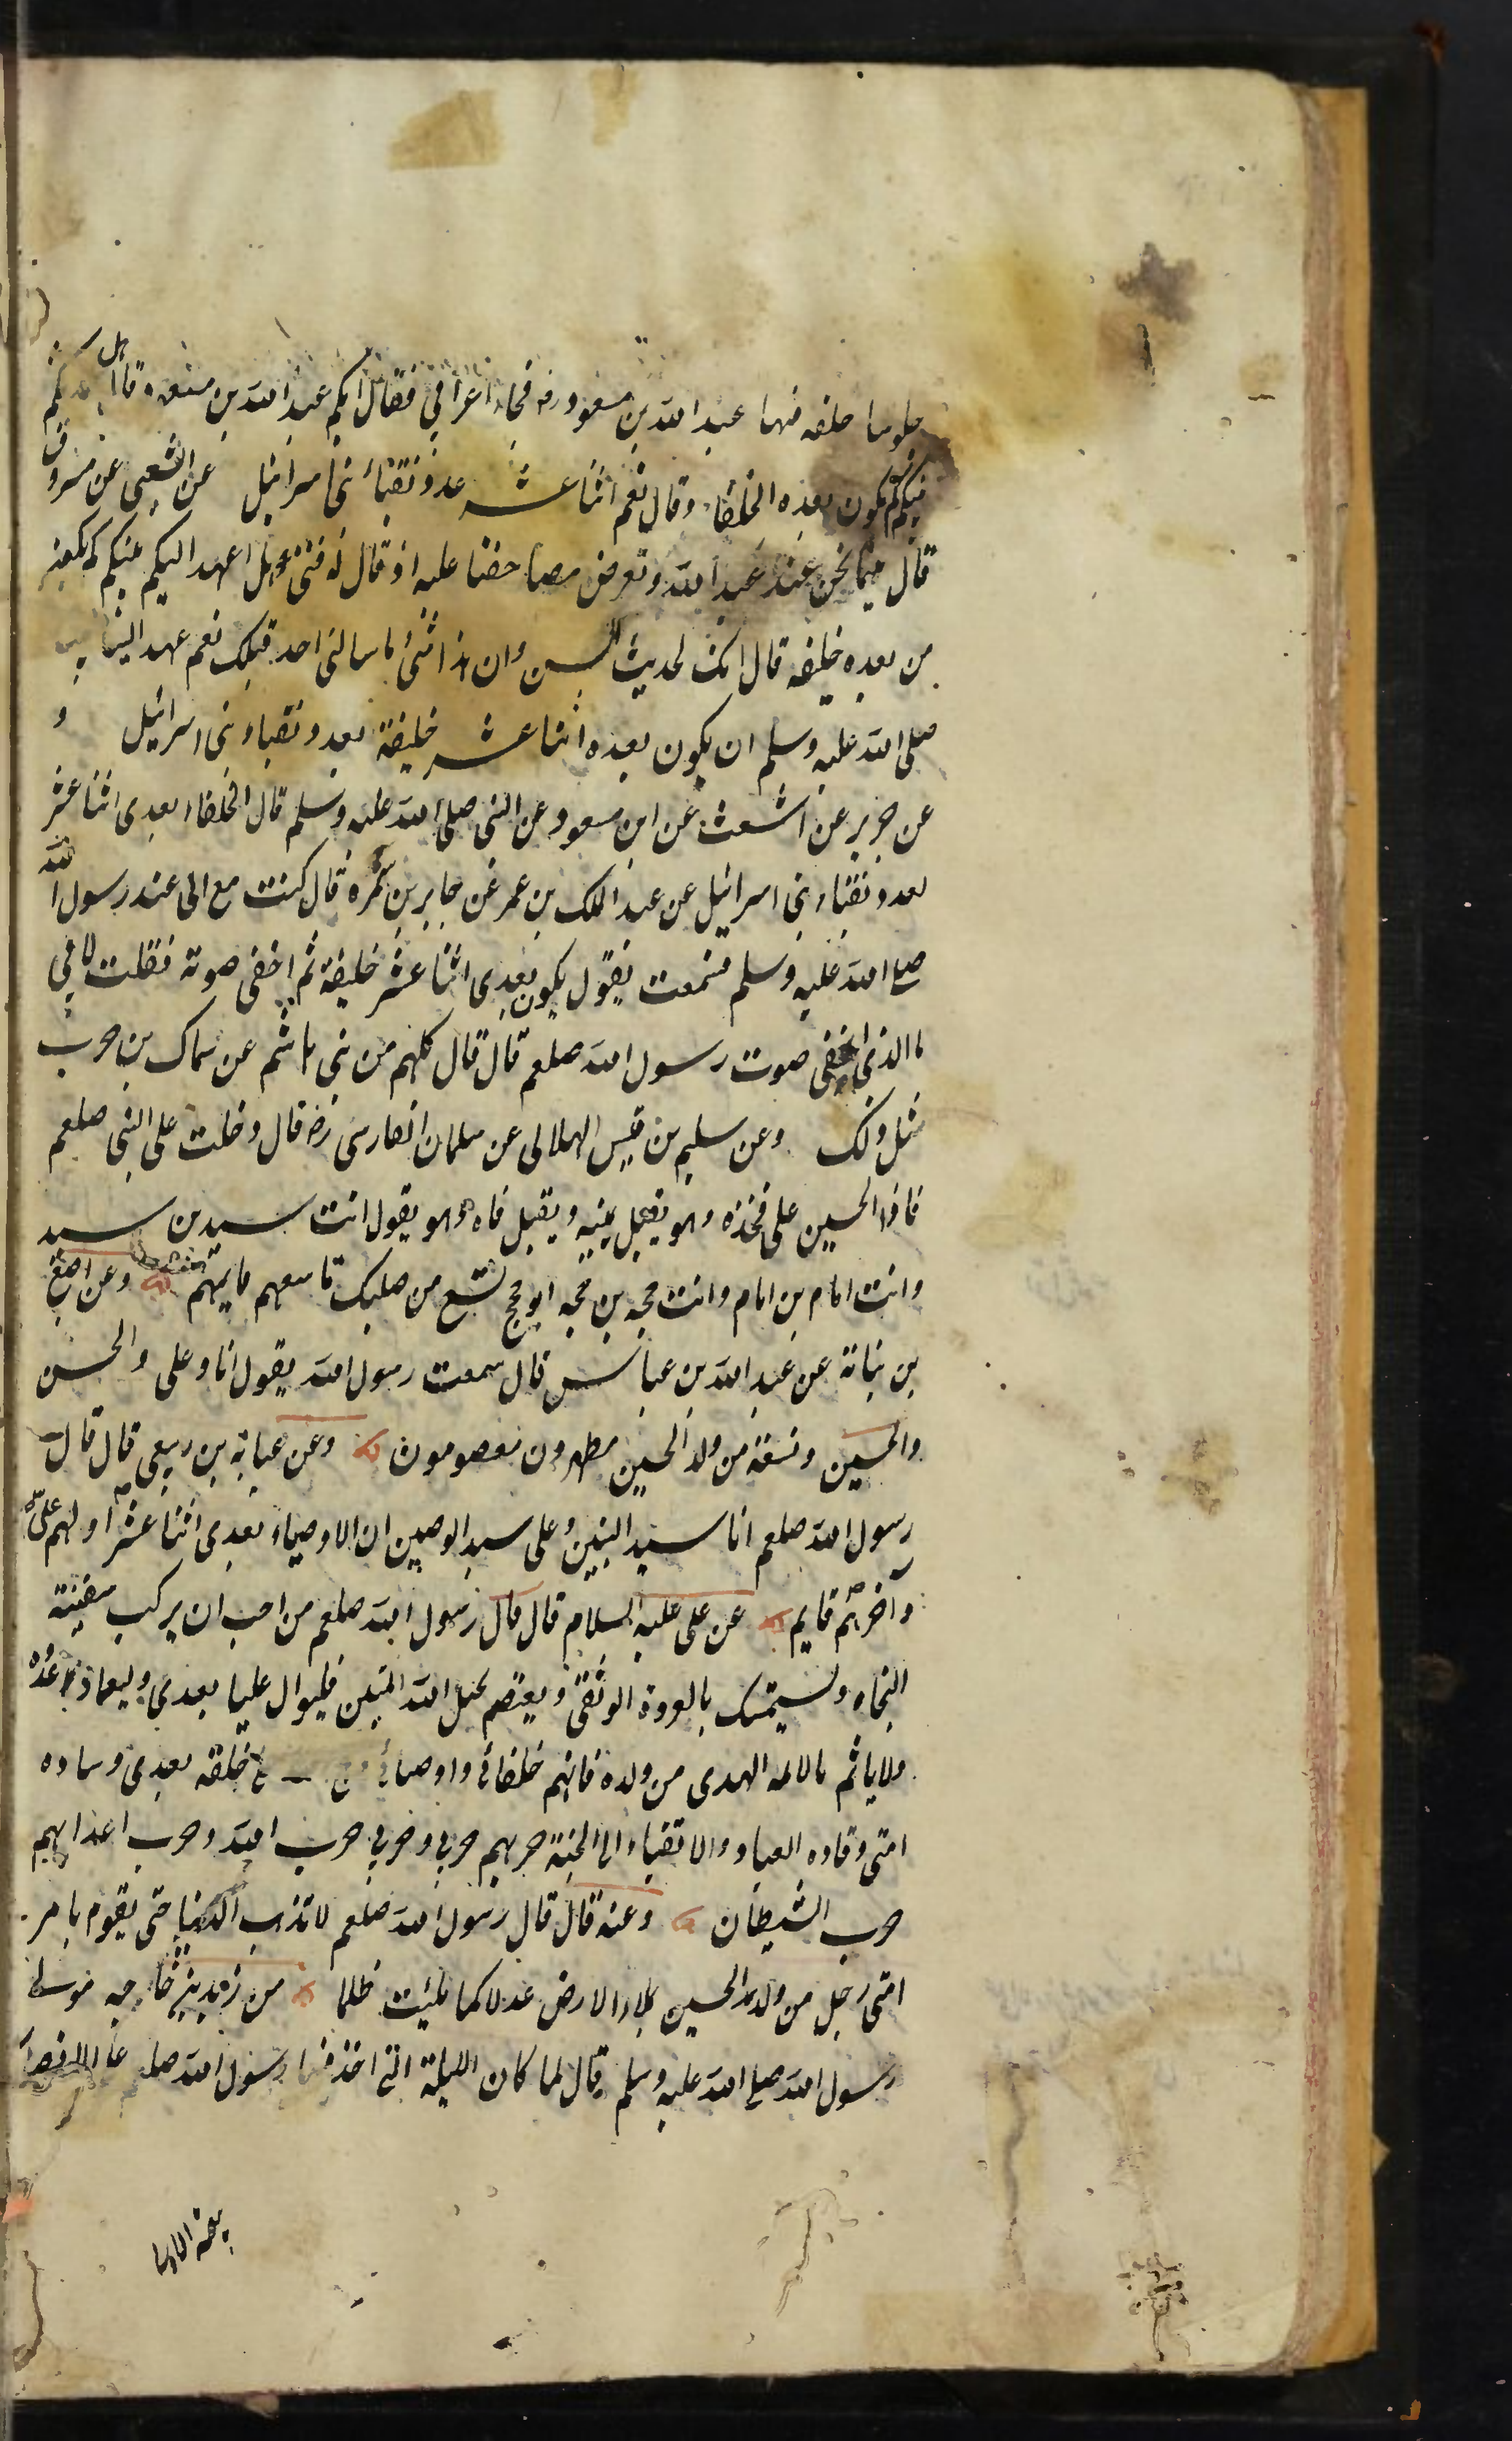 جلوسا حلقه فيها عبد الله بن مسعود رضه فجاء اعرابي فقال ايكم عبد الله بن مسعود قال هل حدثكم
نبيكم كم يكون بعده الخلفاء وقال نعم اثنا عشر عدد نقباء بني اسرائيل عن الشعبي عن مسروق
قال بينما نحن عند عبد الله ونعرض مصاحفنا عليه اذ قال له فتى هل اعهد اليكم نبيكم كم يكون
من بعده خليفه قال انك لحديث السن وان هذا شئ ما سالني احد قبلك نعم عهد الينا نبينا
صلى الله عليه وسلم ان يكون بعده اثنا عشر خليفة بعدد نقباء بني اسرائيل و
عن جرير عن اشعث عن ابن مسعود عن النبي صلى الله عليه وسلم قال الخلفاء بعدي اثنا عشر
بعدد نقباء بني اسرائيل عن عبد الملك بن عمر عن جابر بن سمره قال كنت مع ابي عند رسول الله
صلى الله عليه وسلم فسمعت يقول يكون بعدي اثنا عشر خليفة ثم اخفى صوته فقلت لابي
ما الذي اخفى صوت رسول الله صلعم قال قال كلهم من بني هاشم عن سماك بن حرب
مثل ذلك وعن سليم بن قيس الهلالي عن سلمان الفارسي رضه قال دخلت على النبي صلعم
فاذا الحسين على فخذه وهو يقبل عينيه ويقبل فاه وهو يقول انت سيد بن سيد
وانت امام بن امام وانت حجه بن حجه ابو حجج تسع من صلبك تاسعهم قايمهم وعن اصبغ
بن نباته عن عبد الله بن عباس قال سمعت رسول الله يقول انا وعلى والحسن
والحسين وتسعة من ولد الحسين مطهرون معصومون وعن عبايه بن ربعي قال قال
رسول الله صلعم انا سيد النبيين وعلى سيد الوصيين ان الاوصياء بعدي اثنا عشر اولهم علي
وآخرهم قايم عن على عليه السلام قال قال رسول الله صلعم من احب ان يركب سفينة
النجاه ويستمسك بالعروة الوثقى ويعتصم بحبل الله المتين فليوال عليا بعدي وليعاد عدوه
ولاياتم بالائمه الهدى من ولده فانهم خلفائي واوصيائي خلقه بعدي وساده
امتي وقاده العباد والاتقياء الى الجنة حربهم حربي وحربي حرب الله وحرب اعدايهم
حرب الشيطان وعنه قال قال رسول الله صلعم لا تذهب الدنيا حتى يقوم بامر
امتي رجل من ولد الحسين يملاء الارض عدلا كما ملئت ظلما من زيد بن خارجه مولى
رسول الله صلى الله عليه وسلم قال لما كان الليلة التي اخذ فيها رسول الله صلعم على الانصار